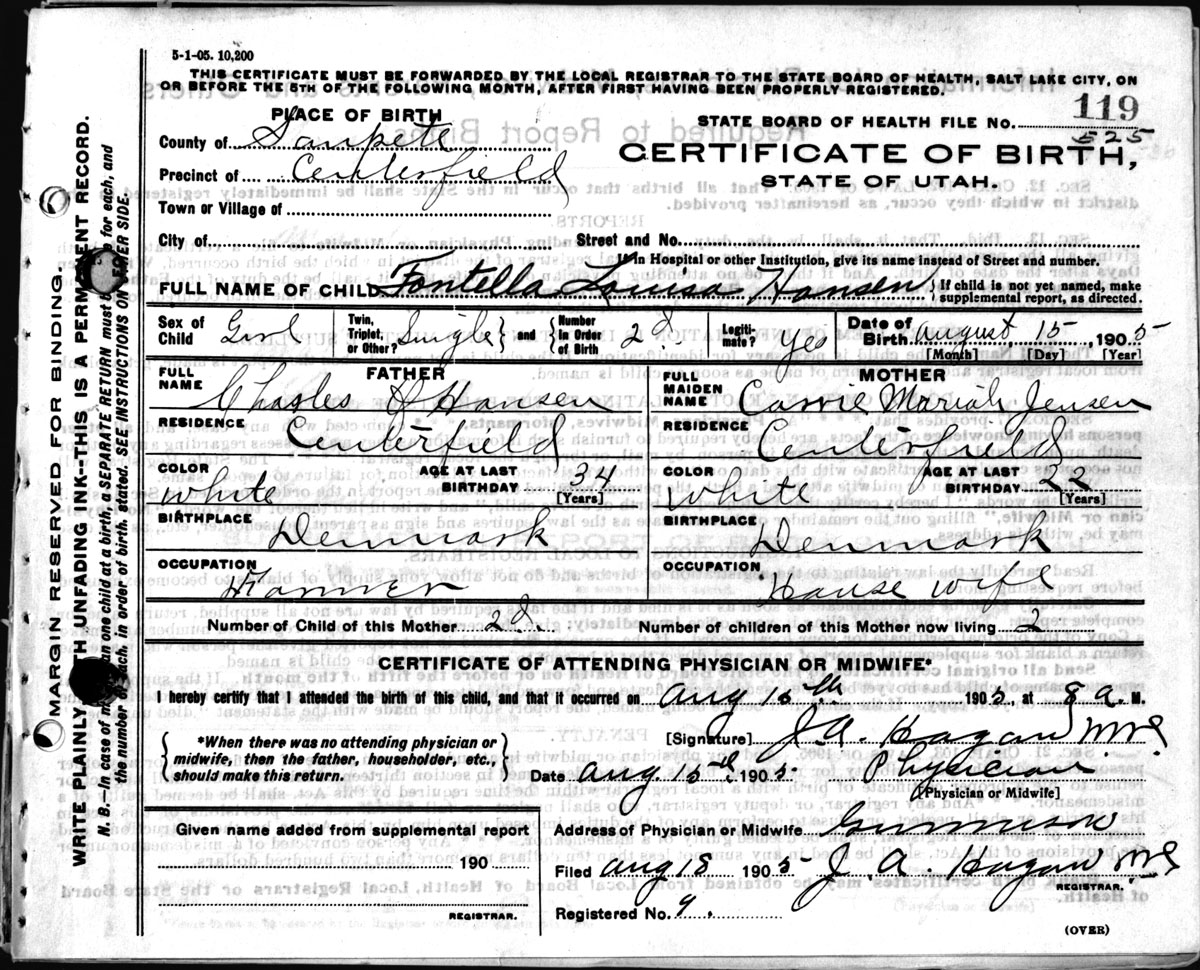 5-1-05. 10,200
THIS CERTIFICATE MUST BE FORWARDED BY THE LOCAL REGISTRAR TO THE STATE BOARD OF HEALTH, SALT LAKE CITY, ON
OR BEFORE THE 5TH OF THE FOLLOWING MONTH, AFTER FIRST HAVING BEEN PROPERLY REGISTERED.
PLACE OF BIRTH
119
STATE BOARD OF HEALTH FILE NO.
525
County of Sanpete
CERTIFICATE OF BIRTH,
Precinct of Centerfield
STATE OF UTAH.
Town or Village of
City of Street and No.
If in Hospital or other Institution, give its name instead of Street and number.
FULL NAME OF CHILD Fontella Louisa Hansen { If child is not yet named, make supplemental report, as directed.
Sex of Child Girl Twin, Triplet, or Other? Single } and { Number In Order of Birth 2d Legitimate? Yes Date of Birth August 15 1905
[Month] [Day] [Year]
FATHER
MOTHER
FULL NAME Charles D Hansen
FULL MAIDEN NAME Carrie Mariah Jensen
RESIDENCE Centerfield
RESIDENCE Centerfield
COLOR White AGE AT LAST BIRTHDAY 34 [Years]
COLOR White AGE AT LAST BIRTHDAY 22 [Years]
BIRTHPLACE Denmark
BIRTHPLACE Denmark
OCCUPATION Farmer
OCCUPATION House wife
Number of Child of this Mother 2d. Number of children of this Mother now living 2
CERTIFICATE OF ATTENDING PHYSICIAN OR MIDWIFE*
I hereby certify that I attended the birth of this child, and that it occurred on Aug 15th 1905, at 8 a. M.
[Signature] J. A. Hagan MD
{ *When there was no attending physician or midwife, then the father, householder, etc., should make this return. }
Date Aug. 15th 1905. Physician
[Physician or Midwife]
Given name added from supplemental report
190
REGISTRAR.
Address of Physician or Midwife Gunnison
Filed Aug 18 1905 J. A. Hagan MD
REGISTRAR.
Registered No. 9.
(OVER)
MARGIN RESERVED FOR BINDING.
WRITE PLAINLY WITH UNFADING INK-THIS IS A PERMANENT RECORD.
N. B.—In case of more than one child at a birth, a SEPARATE RETURN must be made for each, and
the number of each, in order of birth, stated. SEE INSTRUCTIONS ON OTHER SIDE.